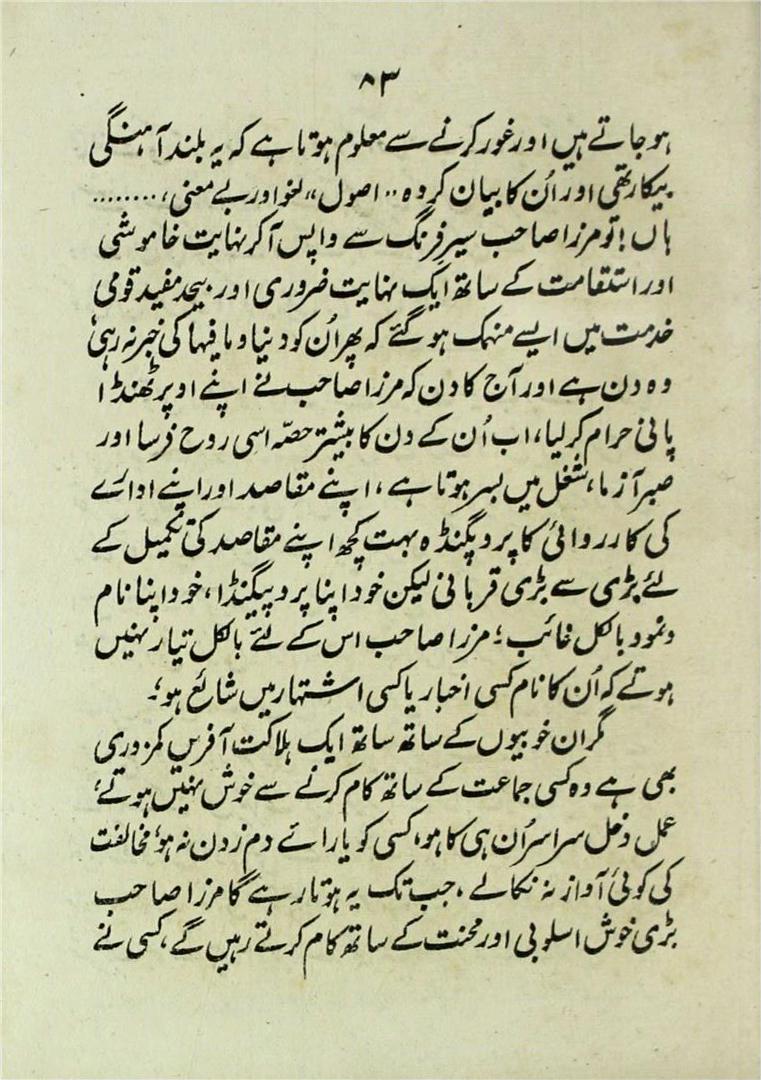 ۸۳
ہو جاتے ہیں اور غور کرنے سے معلوم ہوتا ہے کہ یہ بلند آہنگی
بیکار تھی اور اُن کا بیان کردہ "اصول" لغو اور بے معنی، ........
ہاں! تو مرزا صاحب سیرِ فرنگ سے واپس آکر نہایت خاموشی
اور استقامت کے ساتھ ایک نہایت ضروری اور بیحد مفید قومی
خدمت میں ایسے منہمک ہو گئے کہ پھر اُن کو دنیا و مافیہا کی خبر نہ رہی،
وہ دن ہے اور آج کا دن کہ مرزا صاحب نے اپنے اوپر ٹھنڈا
پانی حرام کر لیا، اب اُن کے دن کا بیشتر حصّہ اسی روح فرسا اور
صبر آزما، شغل میں بسر ہوتا ہے، اپنے مقاصد اور اپنے ادارے
کی کارروائی کا پروپگنڈہ بہت کچھ اپنے مقاصد کی تکمیل کے
لئے بڑی سے بڑی قربانی لیکن خود اپنا پروپیگنڈا، خود اپنا نام
و نمود بالکل غائب؛ مرزا صاحب اس کے لئے بالکل تیار نہیں
ہوتے کہ اُن کا نام کسی اخبار یا کسی اشتہار میں شائع ہو؛
مگر ان خوبیوں کے ساتھ ساتھ ایک ہلاکت آفریں کمزوری
بھی ہے وہ کسی جماعت کے ساتھ کام کرنے سے خوش نہیں ہوتے،
عمل دخل سراسر اُن ہی کا ہو، کسی کو یارائے دم زدن نہ ہو، مخالفت
کی کوئی آواز نہ نکالے، جب تک یہ ہوتا رہے گا مرزا صاحب
بڑی خوش اسلوبی اور محنت کے ساتھ کام کرتے رہیں گے، کسی نے